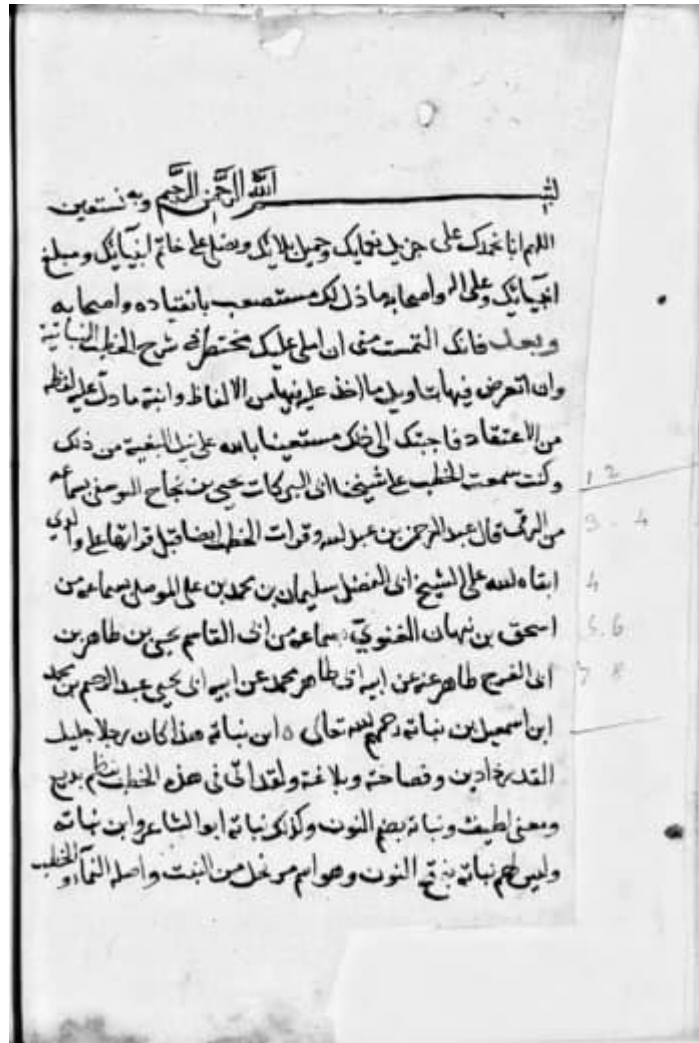 بسم الله الرحمن الرحيم وبه نستعين
اللهم انا نحمدك على جزيل نعمايك وجميل بلايك ونصلي على خاتم انبيآئك ومبلغ
انبيآئك وعلى اله واصحابه ما ذل لك مستصعب بانقياده واصحابه
وبعد فانك التمست منى ان املى عليك مختصرا فى شرح الخطب النباتية
وان اتعرض فيها بتاويل ما اخذ عليه فيها من الالفاظ وانبه ما دل عليه لفظه
من الاعتقاد فاجبتك الى ذلك مستعينا بالله على نيل البغية من ذلك
وكنت سمعت الخطب على شيخنا ابى البركات يحيى بن نجاح الموصلى بسماعه 1 2
من الرقى قال عبد الرحمن بن عبد لله وقرات الخطب ايضا قبل قراتها على والدي 3 - 4
ابقاه لله على الشيخ ابى الفضل سليمان بن محمد بن على الموصلى بسماعه من 4
اسحق بن نبهان الغنويّ بسماعه من ابى القاسم يحيى بن طاهر بن 5.6
ابى الفرج طاهر عنه عن ابيه ابى طاهر محمد عن ابيه ابى يحيى عبد الرحيم بن محمد 7 8
ابن اسمعيل بن نباتة رحمهم لله تعالى ه ابن نباتة هذا كان رجلا جليل
القدر ذا دين وفصاحة وبلاغة ولقد اتى فى هذه الخطب بنظم بديع
ومعنى لطيف ونباتة بضم النون وكذلك نباتة ابو الشاعر وابن نباتة
وليس لهم نباتة بفتح النون وهو اسم مرتجل من النبت واصله النمآء والخطب